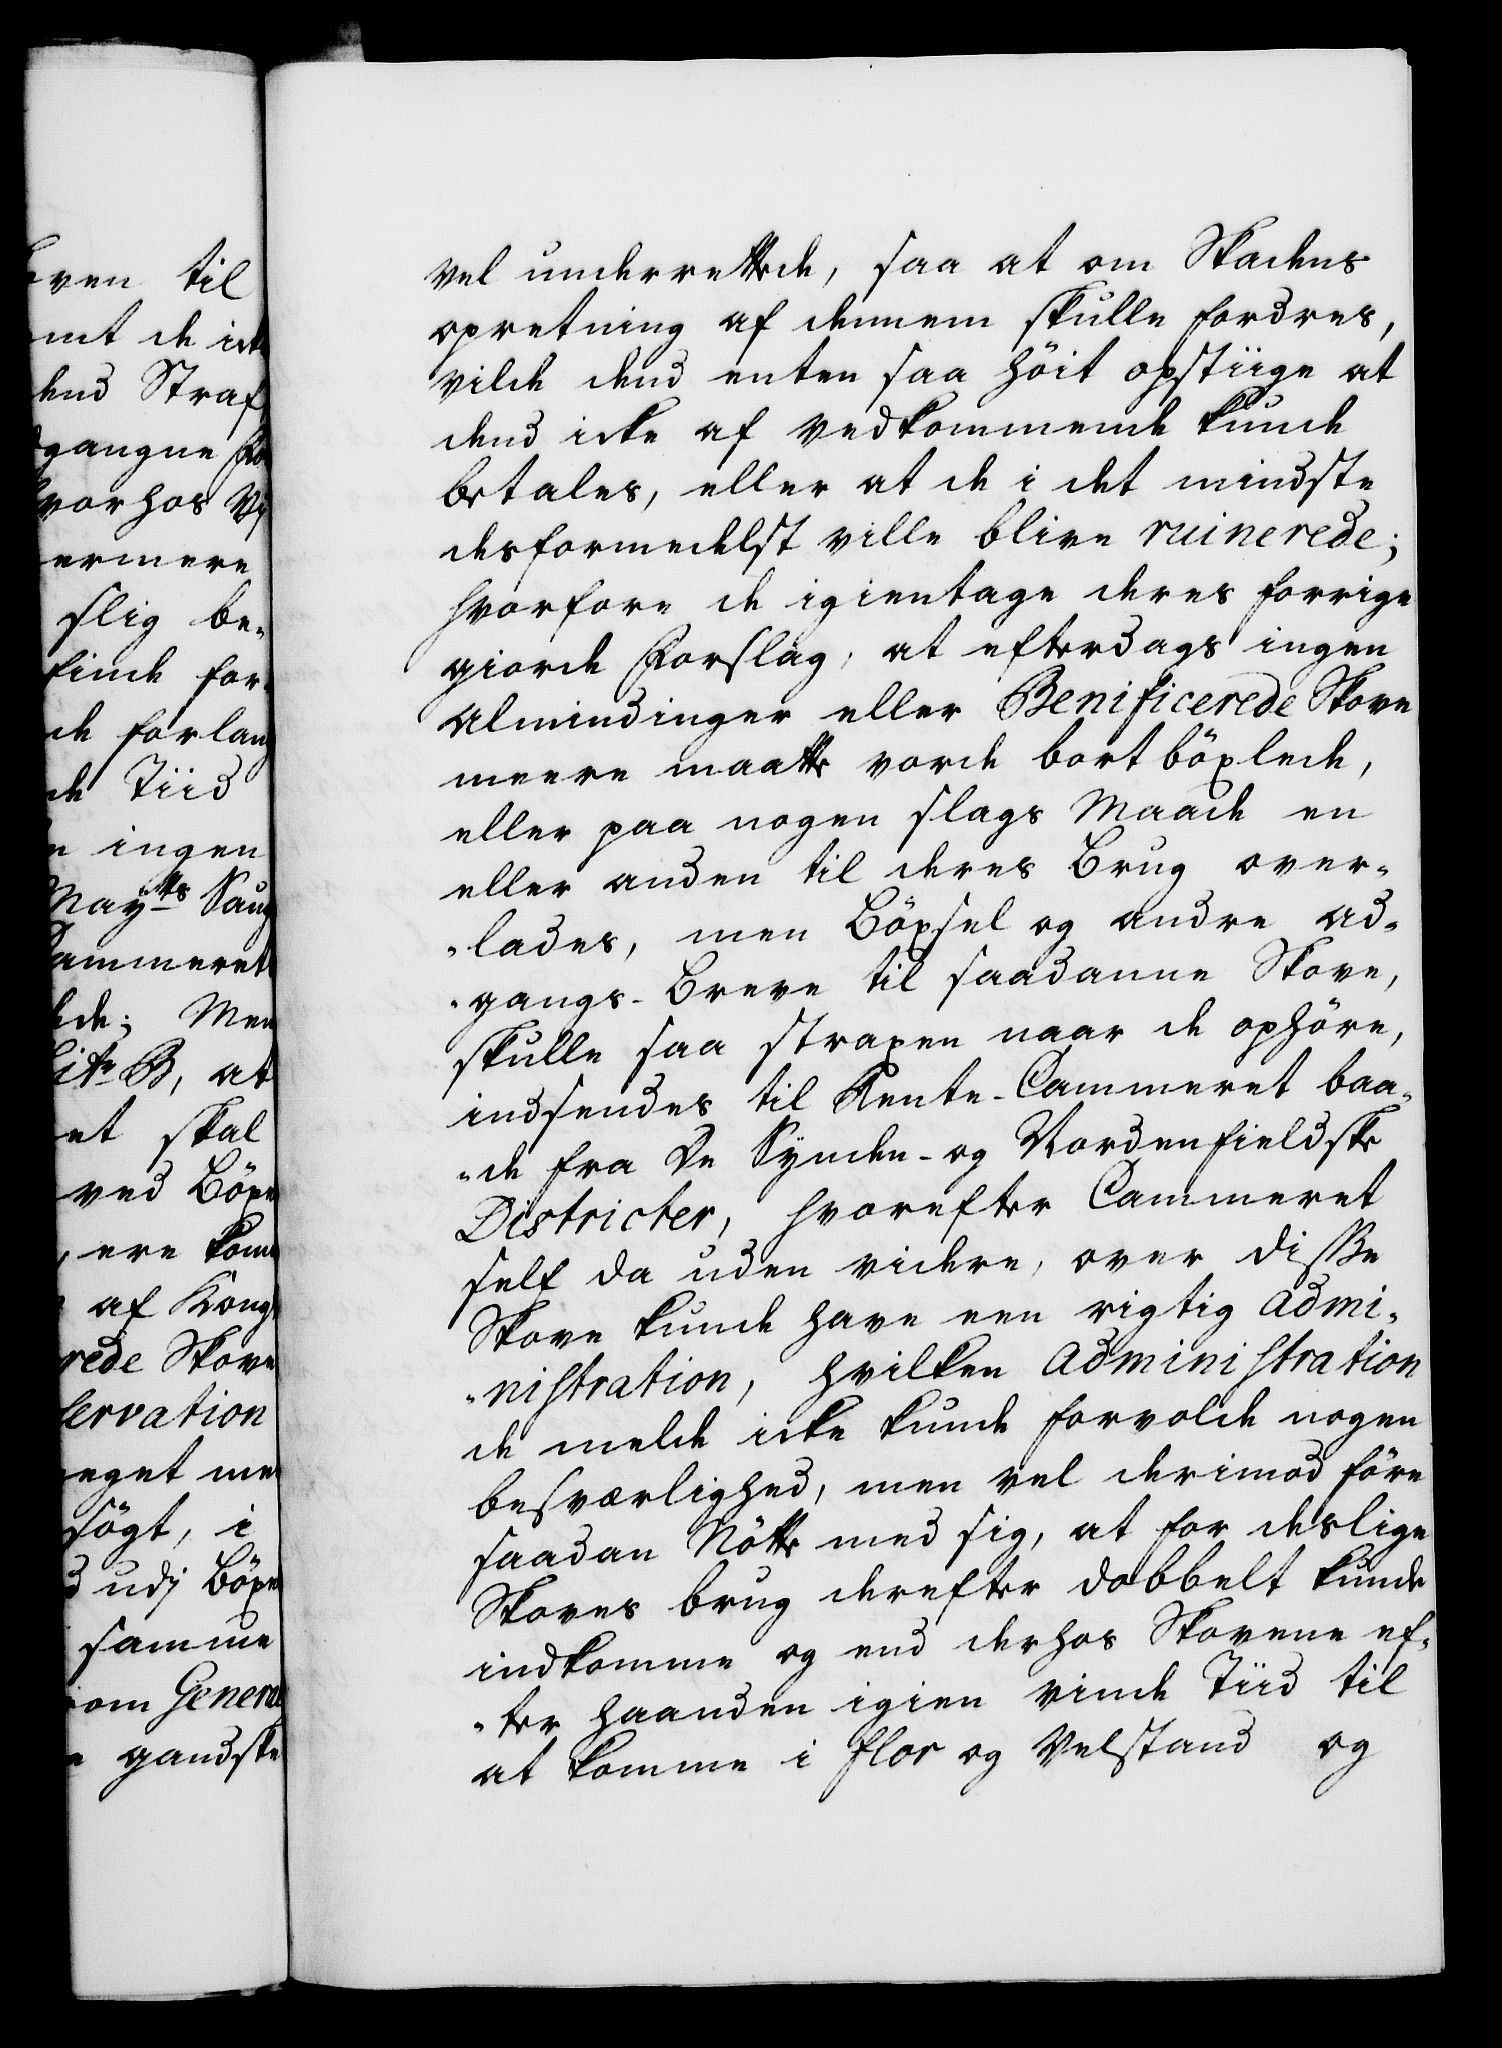 even til
mt de ick
dend Straf
gangne For
hvorhos Vj
ermere
slig be-
finde for-
de forlang
de Tiid
ingen
Mayts Saug
Cammeret
de; Men
Litr B, at
et skal
ved Böxe
, ere kom
af Kong
rede Skove
servation
eget me
sögt, i
udj Böxe
samme
om General
gandske
vel underrettede, saa at om Skadens
opretning af dennem skulle fordres,
vilde dend enten saa höit opstiige at
dend icke af vedkommende kunde
betales, eller at de i det mindste
desformedelst ville blive ruinerede;
hvorfore de igientage deres forrige
giorde Forslag, at efterdags ingen
Almindinger eller Benificerede Skove
meere maatte vorde bort böxlede,
eller paa nogen slags Maade en
eller anden til deres Brug over-
-lades, men Böxsel og andre ad-
-gangs-Breve til saadanne Skove,
skulle saa straxen naar de ophöre,
indsendes til Rente-Cammeret baa-
-de fra De Synden- og Nordenfieldske
Districter, hvorefter Cammeret
self da uden videre, over disse
Skove kunde have een rigtig Admi-
-nistration, hvilken Administration
de melde icke kunde forvolde nogen
besværlighed, men vel derimod före
saadan Nötte med sig, at for deslige
Skoves brug derefter dobbelt kunde
indkomme og end derhos Skovene ef-
-ter haanden igien vinde Tiid til
at komme i flor og Velstand og